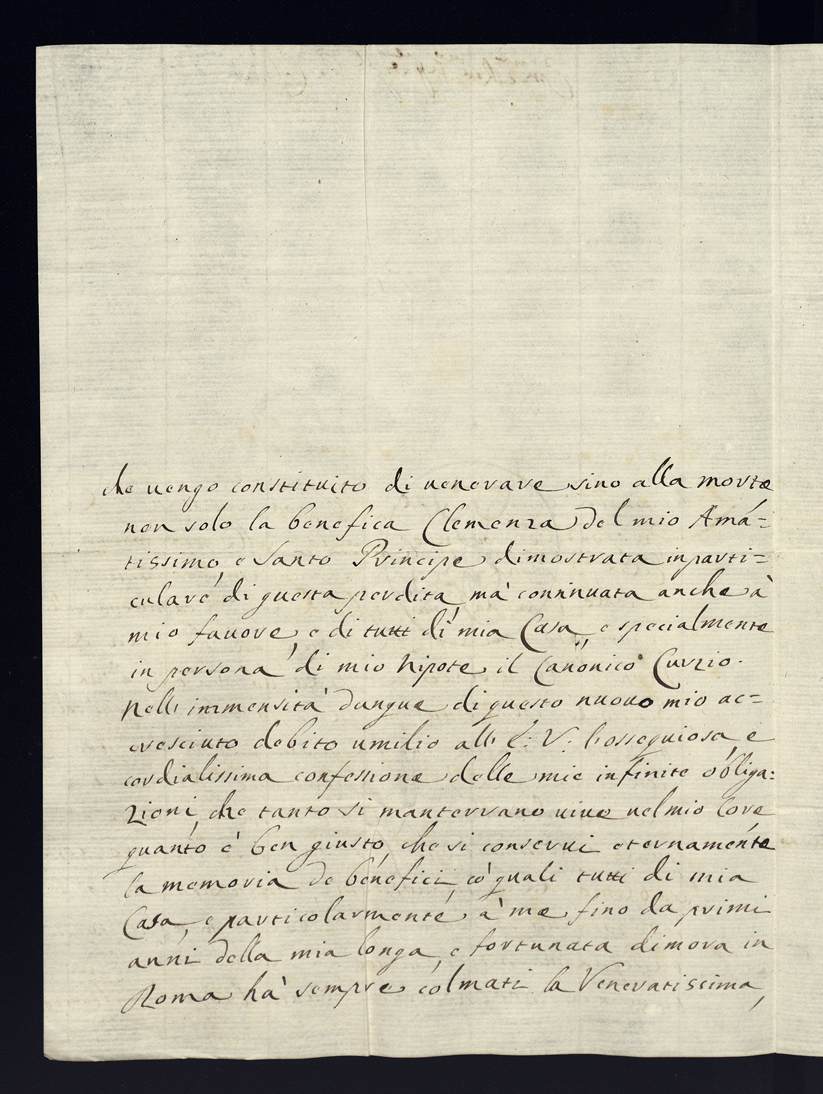 che uengo constituito di uenerare sino alla morte
non solo la benefica Clemenza del mio Ama=
tissimo, e Santo Principe dimostrata in parti=
culare di questa perdita, mà continuata anche à
mio fauore, e di tutti di mia Casa, e specialmente
in persona di mio Nipote il Canonico Curzio.
Nell' immensità dunque di questo nuouo mio ac=
cresciuto debito umilio all' E: V: l'ossequiosa, e
cordialissima confessione delle mie infinite obliga=
zioni, che tanto si manterrano uiue nel mio Core
quanto è ben giusto, che si conserui eternamente
la memoria de benefici, co' quali tutti di mia
Casa, e particolarmente à me fino da primi
anni della mia longa, e fortunata dimora in
Roma hà sempre colmati la Veneratissima,